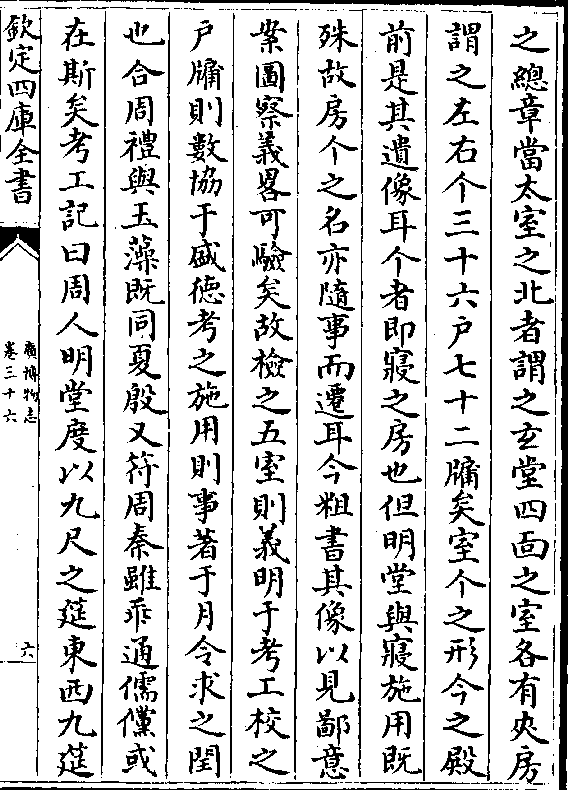 之總章當太室之北者謂之玄堂四面之室各有夾房
謂之左右个三十六户七十二牖矣室个之形今之殿
前是其遺像耳个者即寢之房也但明堂與寢施用既
殊故房个之名亦隨事而遷耳今粗書其像以見鄙意
案圖察義畧可驗矣故檢之五室則義明于考工校之
户牖則數協于盛徳考之施用則事著于月令求之閏
也合周禮與玉藻既同夏殷又符周秦雖乖通儒儻或
在斯矣考工記曰周人明堂度以九尺之筵東西九筵
欽定四庫全書
廣博物志
卷三十六
六